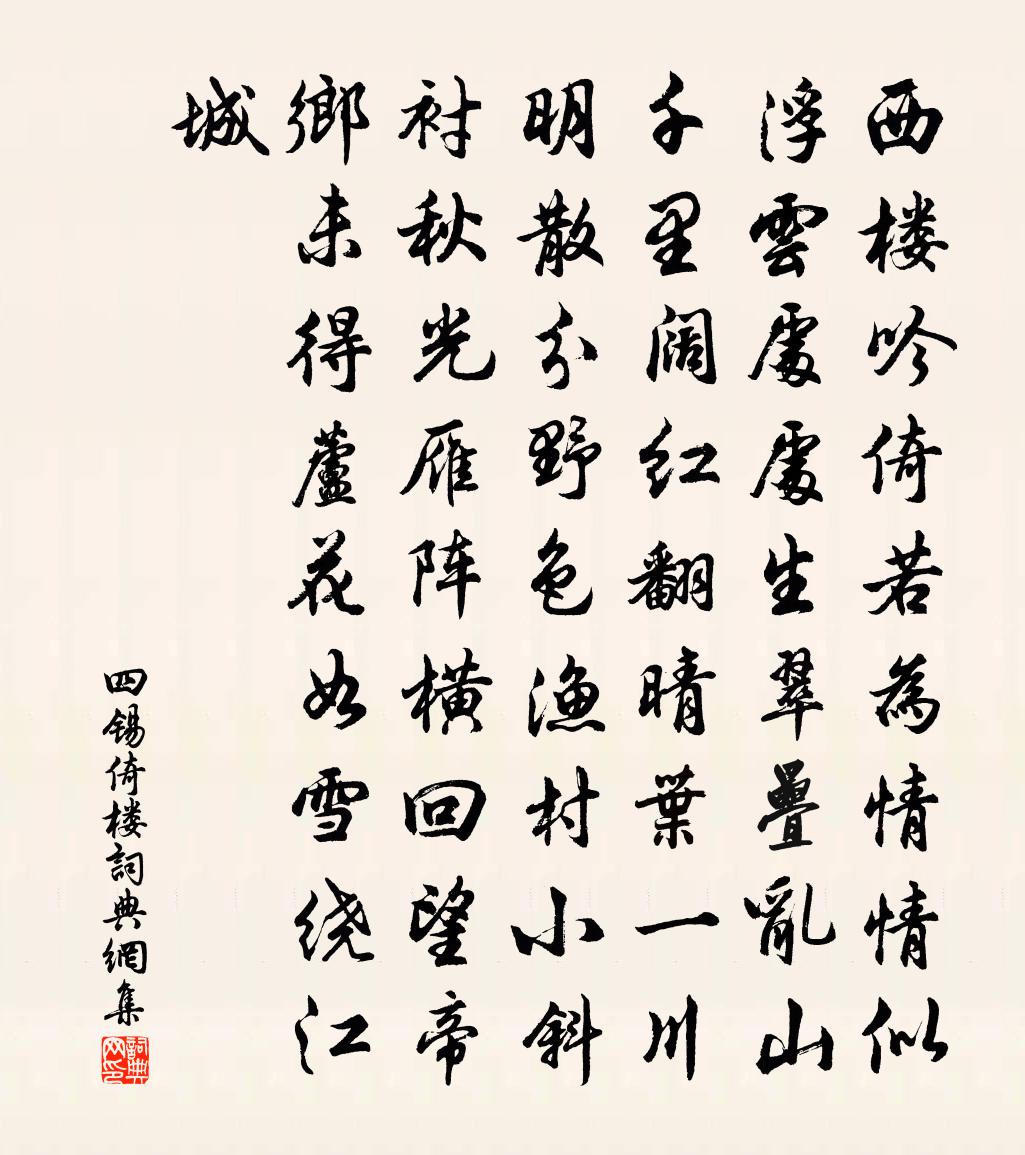 西楼吟倚若為情情似
浮雲處處生翠疊亂山
千里阔红翻晴葉一川
明散分野色漁村小斜
衬秋光雁阵横回望帝
鄉未得蘆花如雪绕江
城
四锡倚楼詞典網集
詞典网印